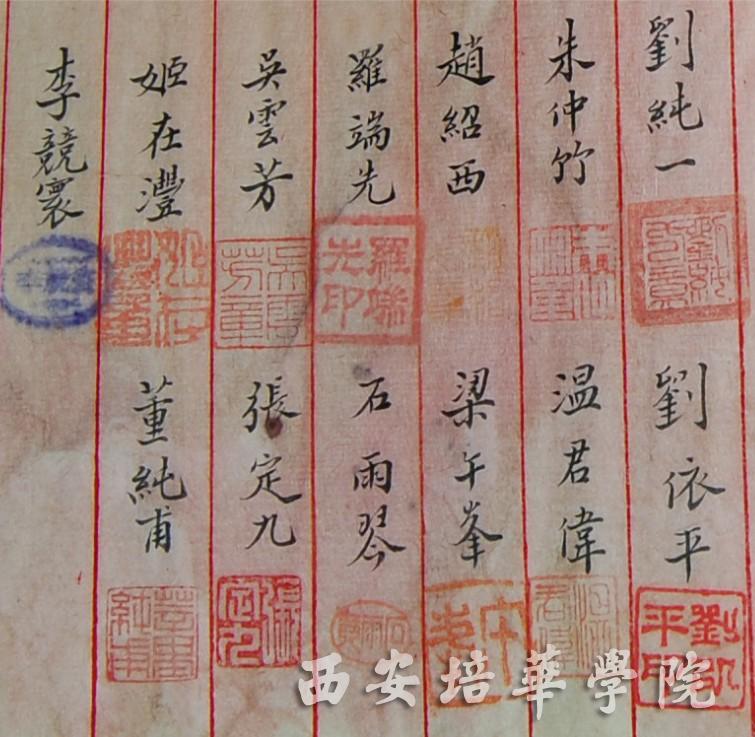 劉純一
劉依平
朱仲竹
温君偉
趙紹西
梁午峯
羅端先
羅端先印
石雨琴
吳雲芳
張定九
姬在灃
董純甫
李競寰
西安培華學院